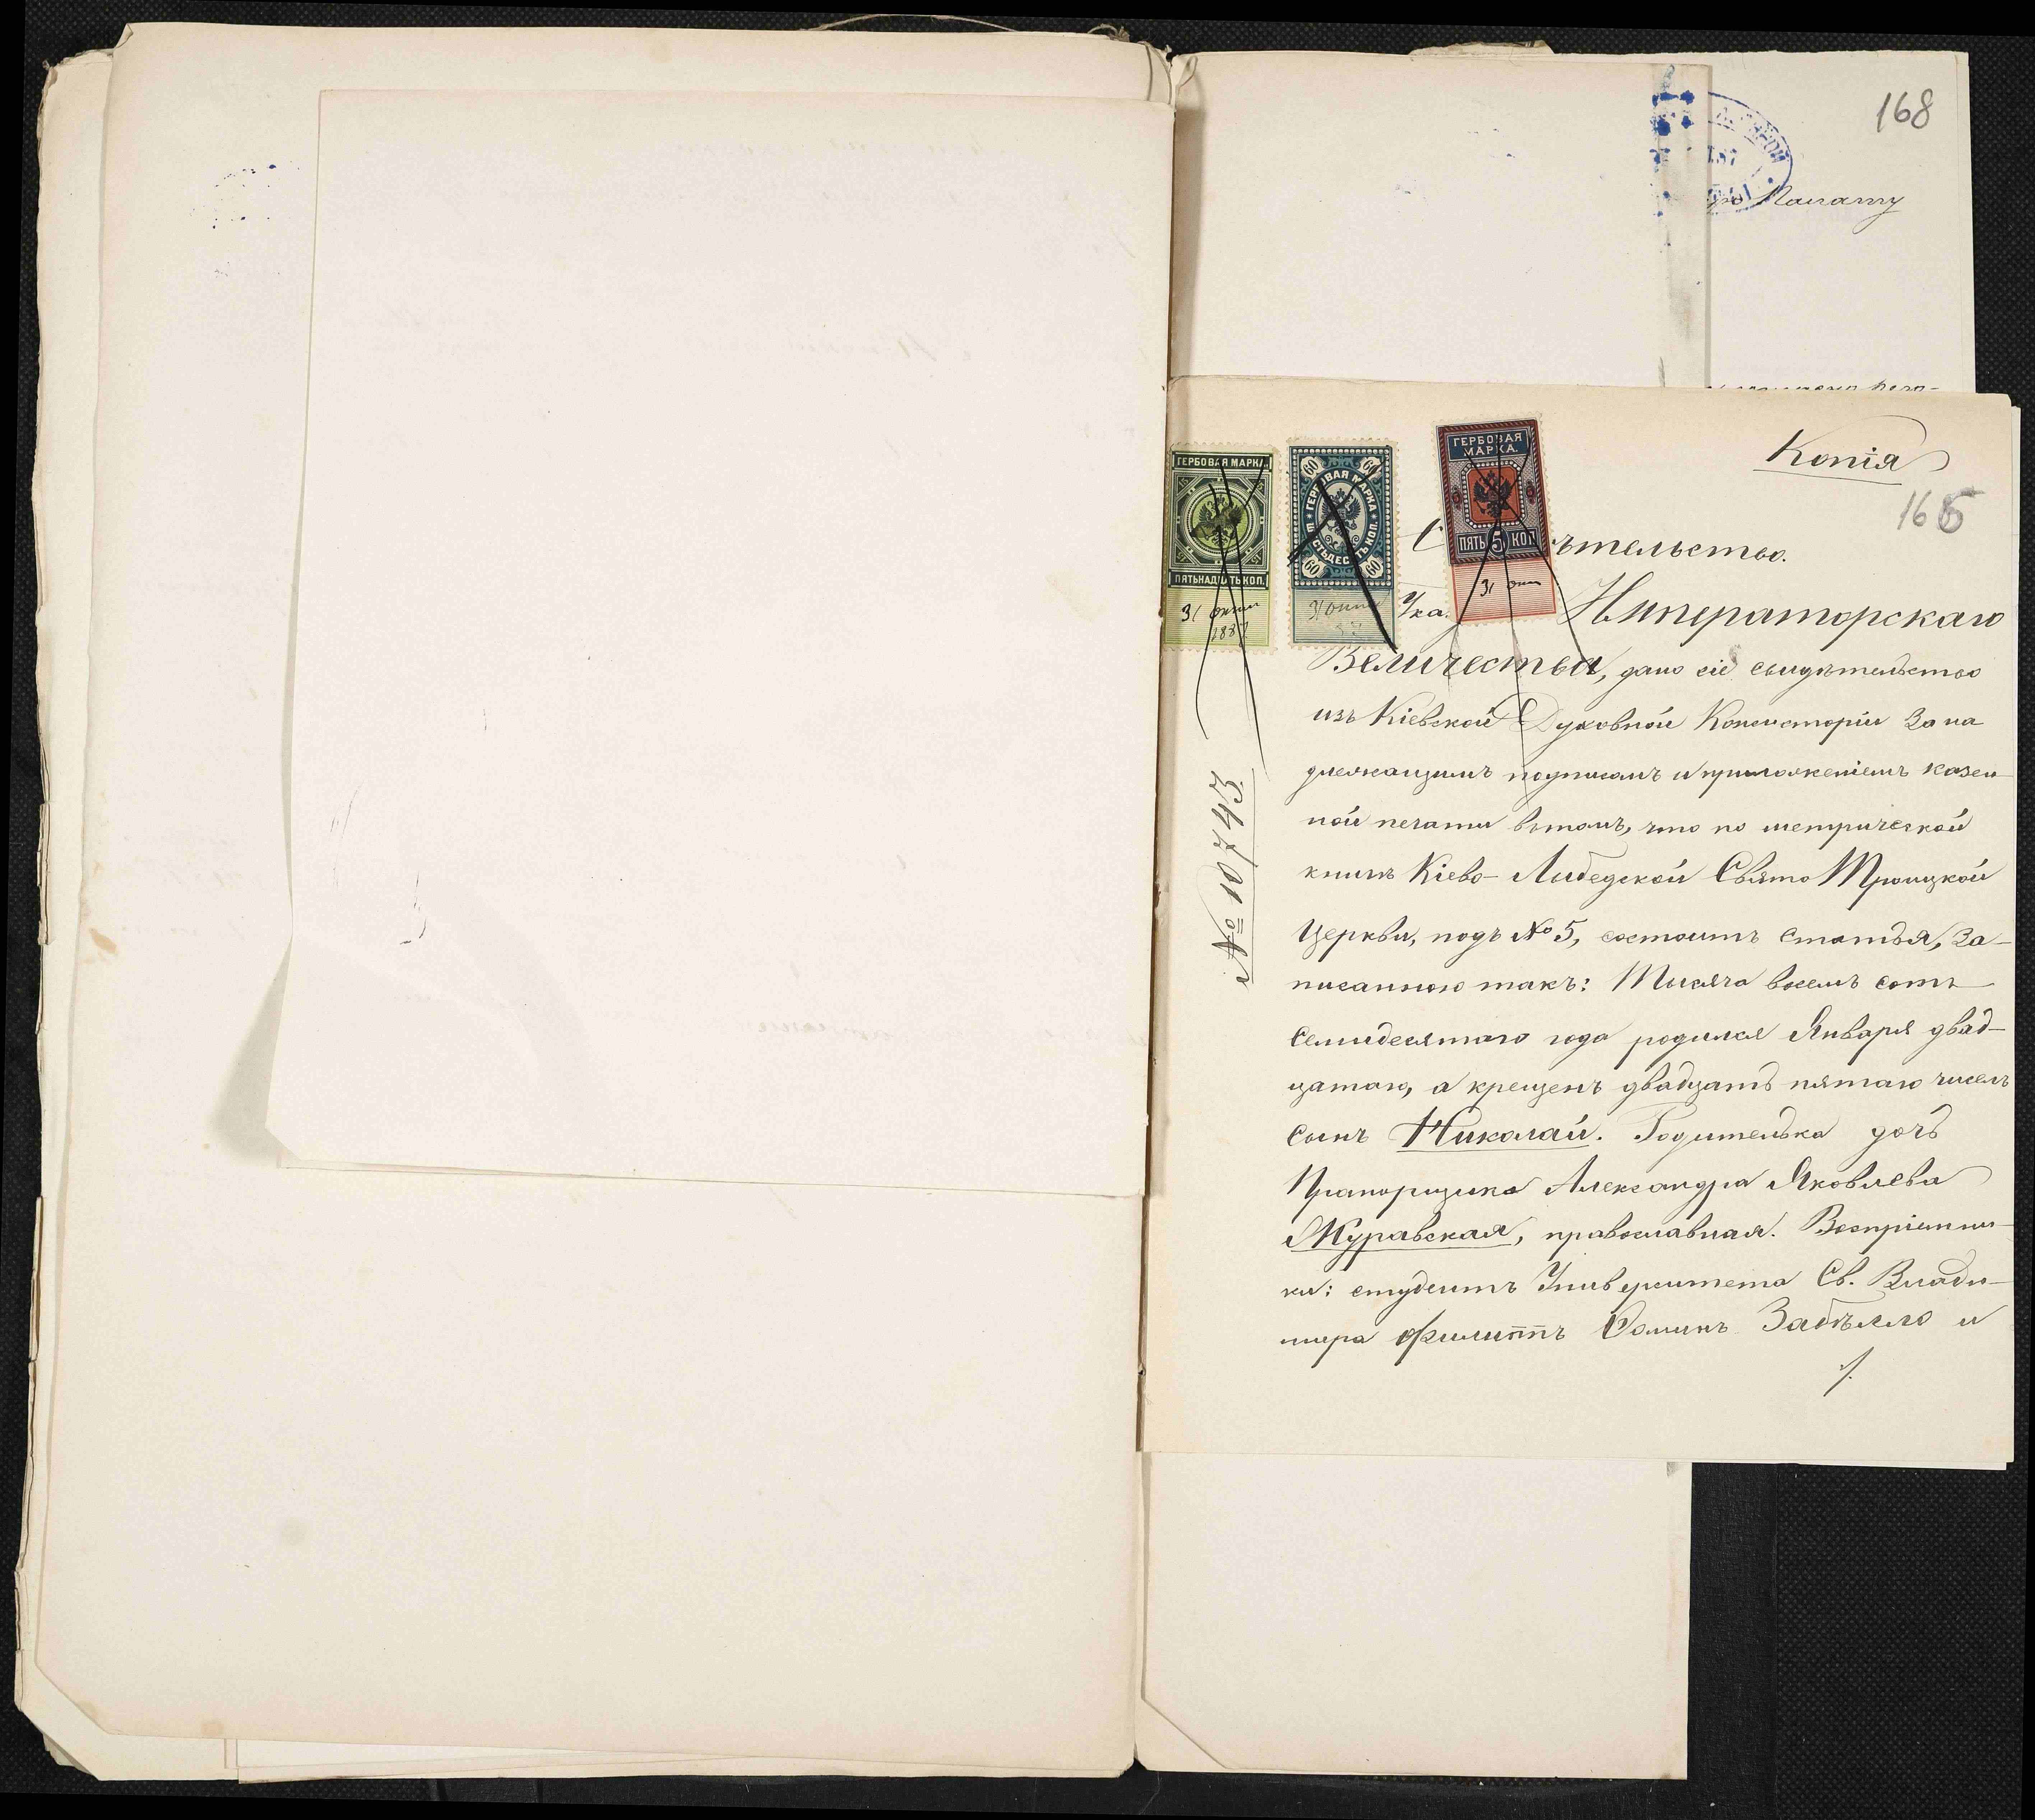 168
Палату
Копія
165
ГЕРБОВАЯ МАРКА
ПЯТЬНАДЦАТЬ КОП.
31 окт
1887
60 60
ГЕРБОВАЯ МАРКА
ШЕСТЬДЕСЯТЪ КОП.
60 60
31 окт
87
ГЕРБОВАЯ
МАРКА
ПЯТЬ 5 КОП
31 окт
№ 10743
С ѣтельство.
Ука. Императорскаго
Величества, дано сіе свидѣтельство
изъ Кіевской Духовной Консисторіи за на
длежащимъ подписомъ и приложеніемъ казен
ной печати въ томъ, что по метрической
книгѣ Кіево-Лыбедской Свято Троицкой
Церкви, подъ № 5, состоитъ статья, за-
писанною такъ: Тысяча восемъ сотъ
семидесятаго года родился Января двад-
цатаго, а крещенъ двадцать пятаго числъ
сынъ Николай. Родителька дочь
Прапорщика Александра Яковлева
Журавская, православная. Воспріемни-
ки: студентъ Университета Св. Влади-
мира Филиппъ Забѣлло и
./.